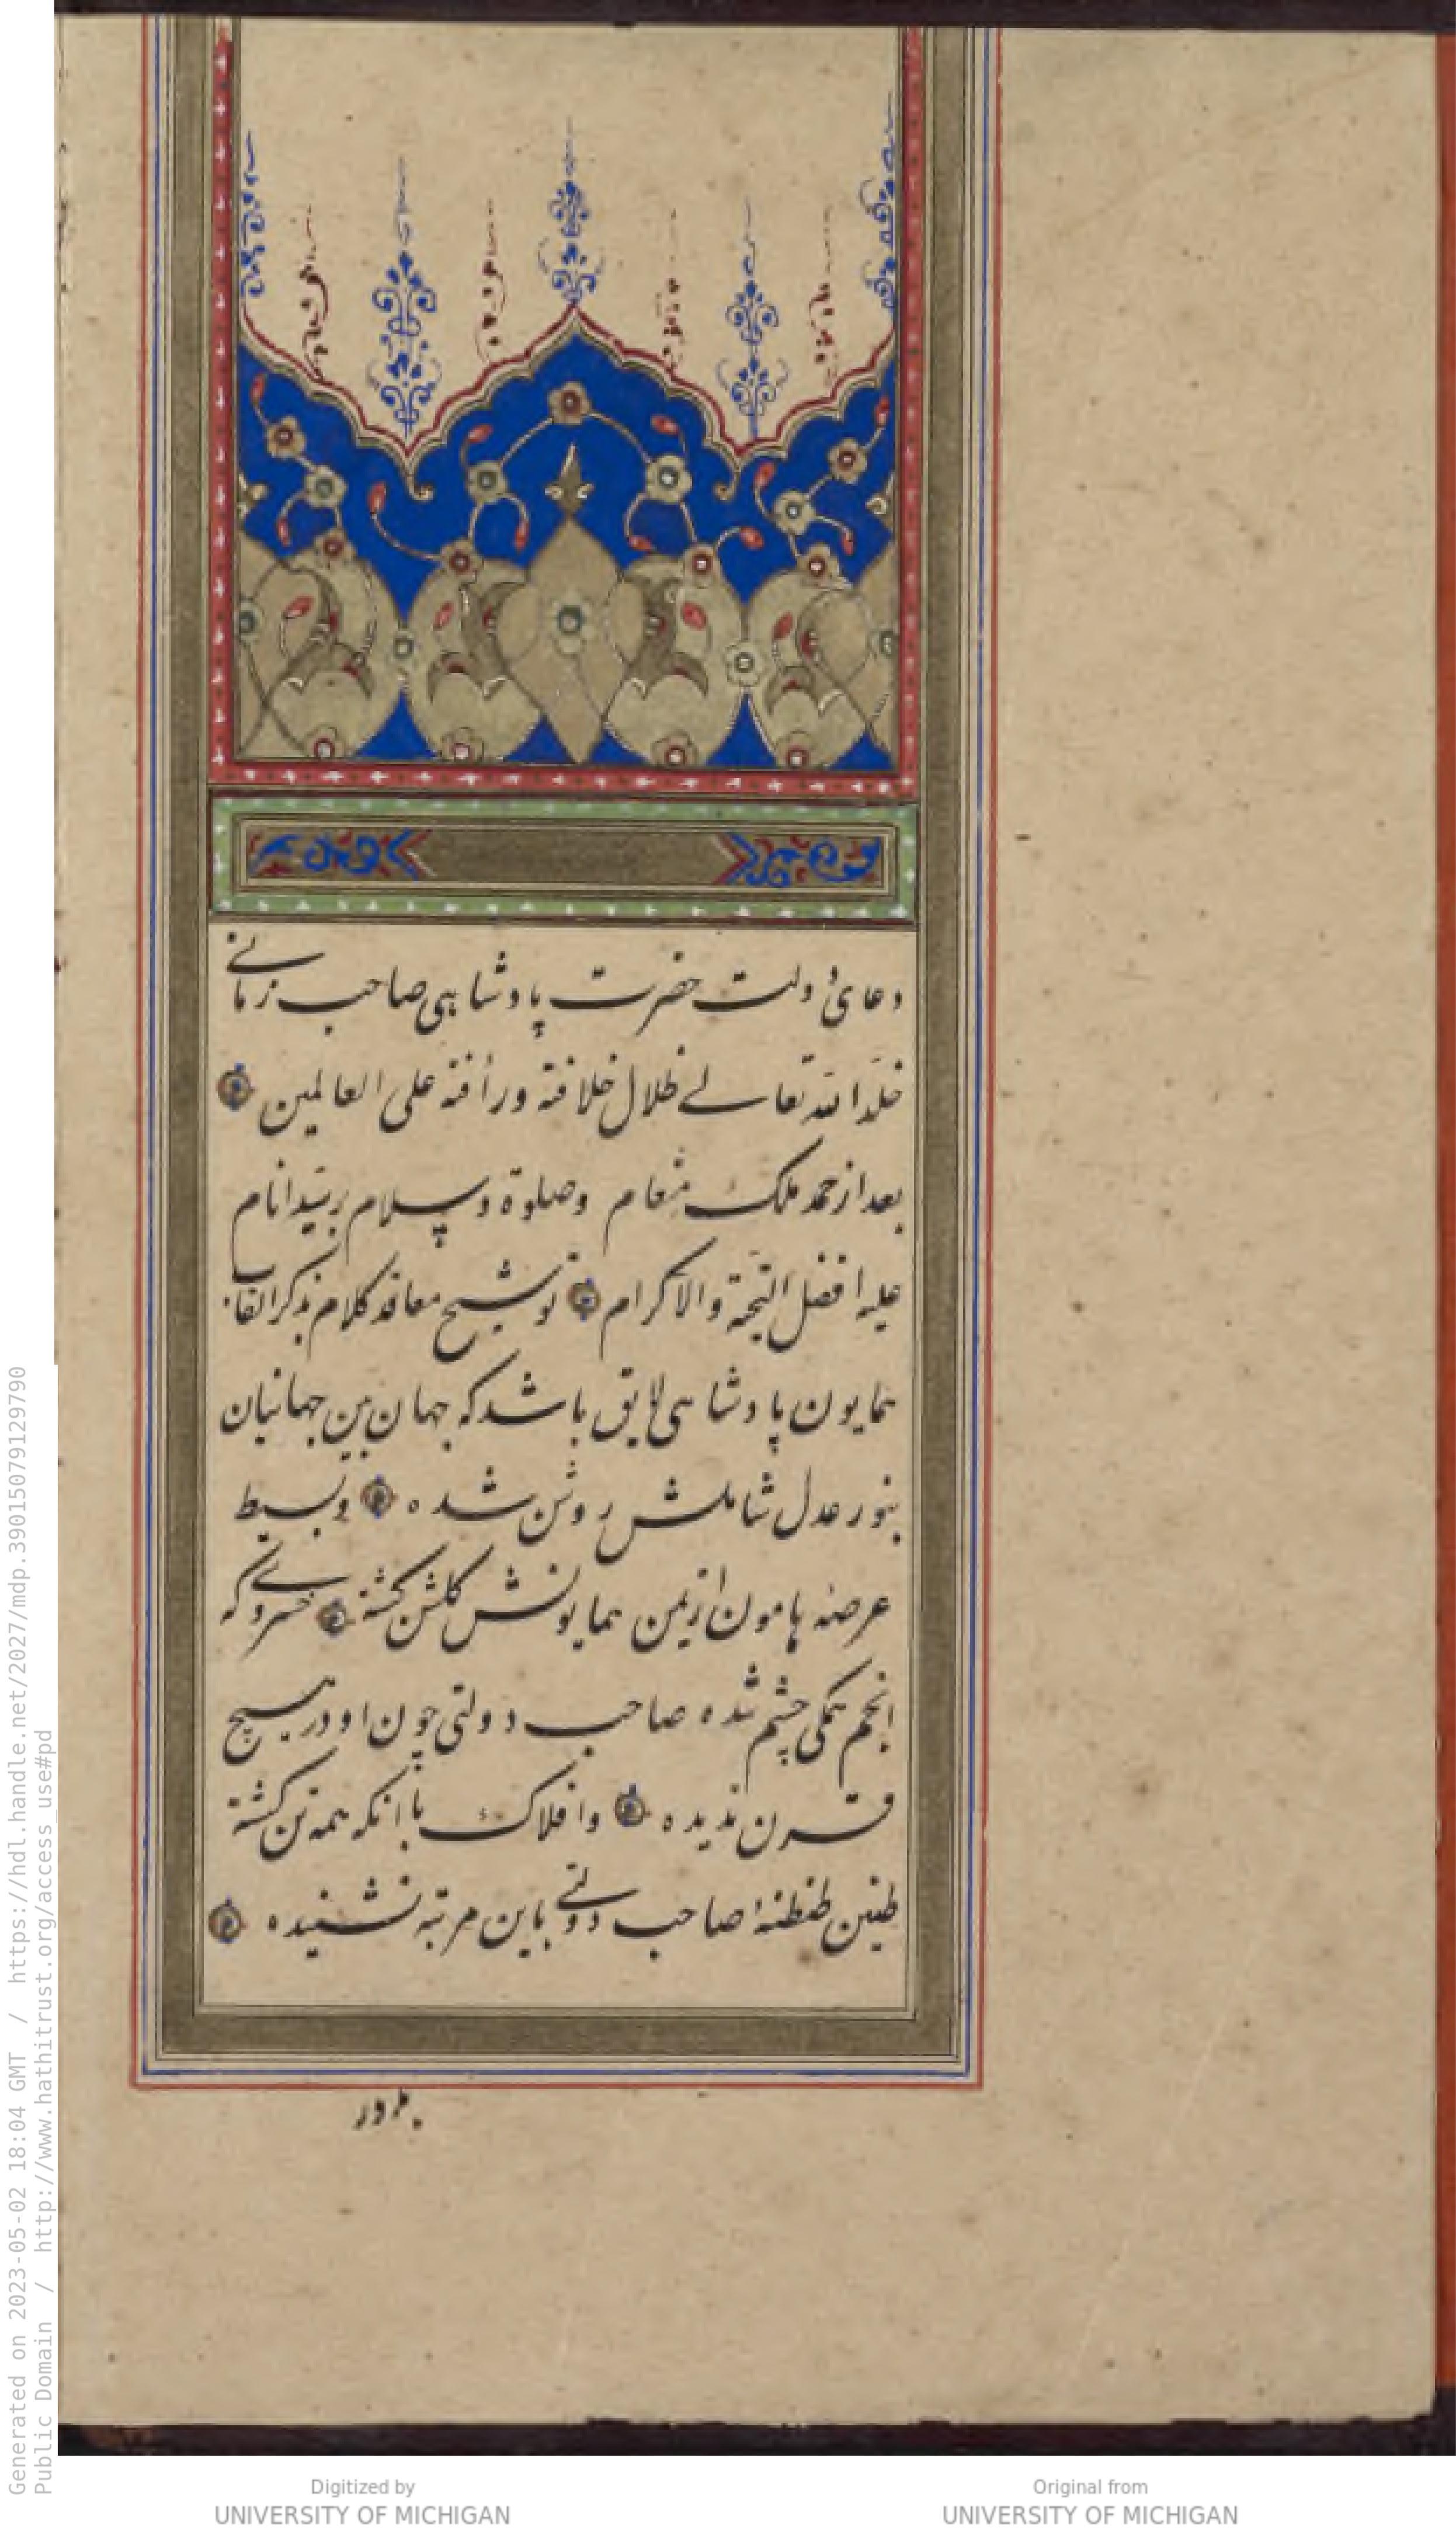 دعائ دولت حضرت پادشاهی صاحب زمانے
خلّد الله تعالے ظلال خلافته ورأفته علی العالمین
بعد از حمد ملک منعام وصلوة وسلام بر سیّد انام
علیه افضل التّحیة والاکرام توشیح معاقد کلام بذکر القاب
همایون پادشاهی لایق باشد که جهان بین جهانیان
بنور عدل شاملش روشن شده وبسیط
عرصهٔ هامون از یمن همایونش گلشن گشته خسروے که
انجم همگی چشم شده صاحب دولتی چون او در هیچ
قرن ندیده وافلاک باانکه همه تن گشته
طنین طنطنهٔ صاحب دولتے باین مرتبه نشنیده
Generated on 2023-05-02 18:04 GMT / https://hdl.handle.net/2027/mdp.39015079129790
Public Domain / http://www.hathitrust.org/access_use#pd
Digitized by
UNIVERSITY OF MICHIGAN
Original from
UNIVERSITY OF MICHIGAN